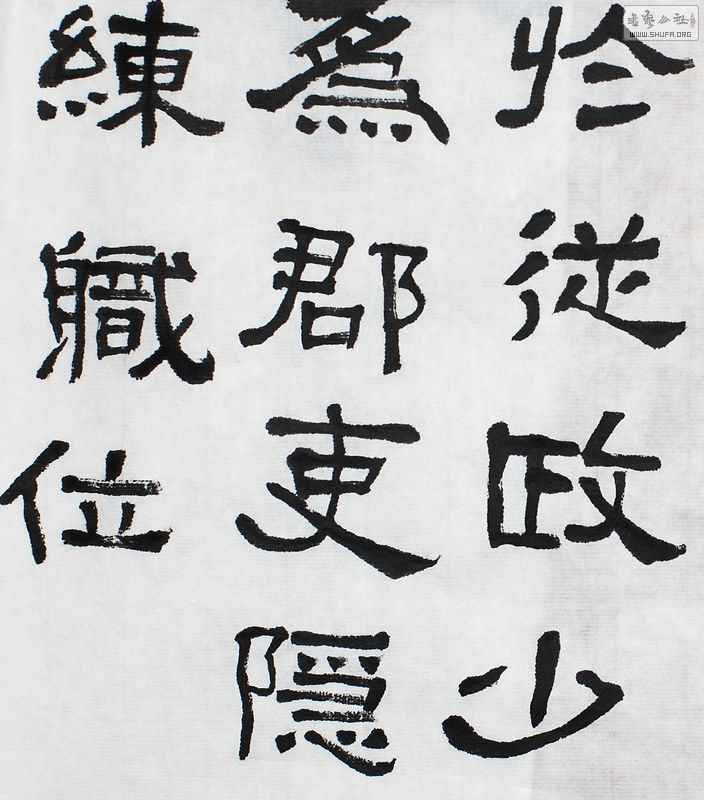 於從政少
為郡吏隱
練職位
書藝公社
WWW.SHUFA.ORG